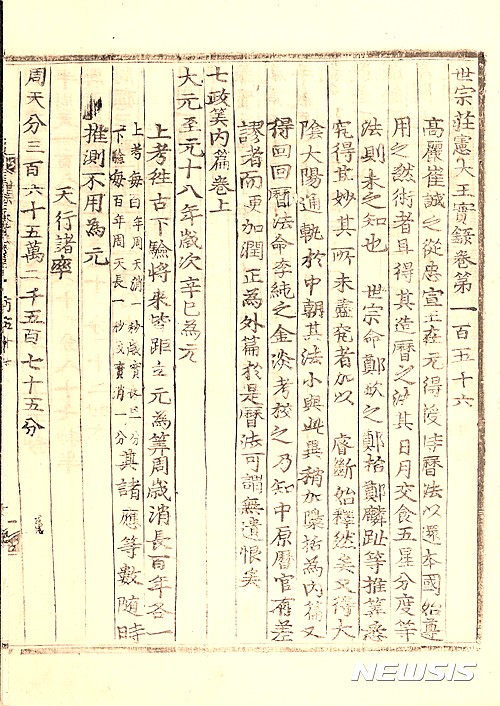 世宗莊憲大王實錄卷第一百五十六
高麗崔誠之從忠宣王在元得授時曆法以還本國始遵
用之然術者且得其造曆之法其日月交食五星分度等
法則未之知也 世宗命鄭欽之鄭招鄭麟趾等推筭悉
究得其妙其所未盡究者加以 睿斷始釋然矣又得大
陰大陽通軌於中朝其法小與此異稍加檃括為內篇又
得回回曆法命李純之金淡考校之乃知中原曆官有差
謬者而更加潤正為外篇於是曆法可謂無遺恨矣
七政筭內篇卷上
大元至元十八年歲次辛巳為元
上考徃古下驗將来皆距立元為筭周歲消長百年各一
上考每百年周天消一秒歲實長一分
下驗每百年周天長一秒歲實消一分
其諸應等數随時
推測不用為元
天行諸率
周天分三百六十五萬二千五百七十五分
NEWSIS